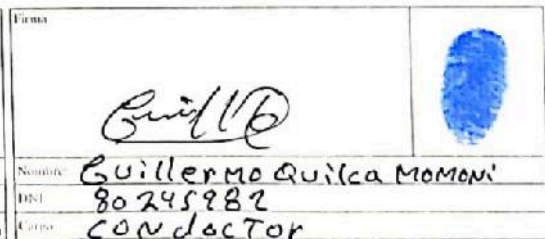 Firma
Nombre: Guillermo Quilca MOMONi
DNI 80245282
Cargo CONdocTor